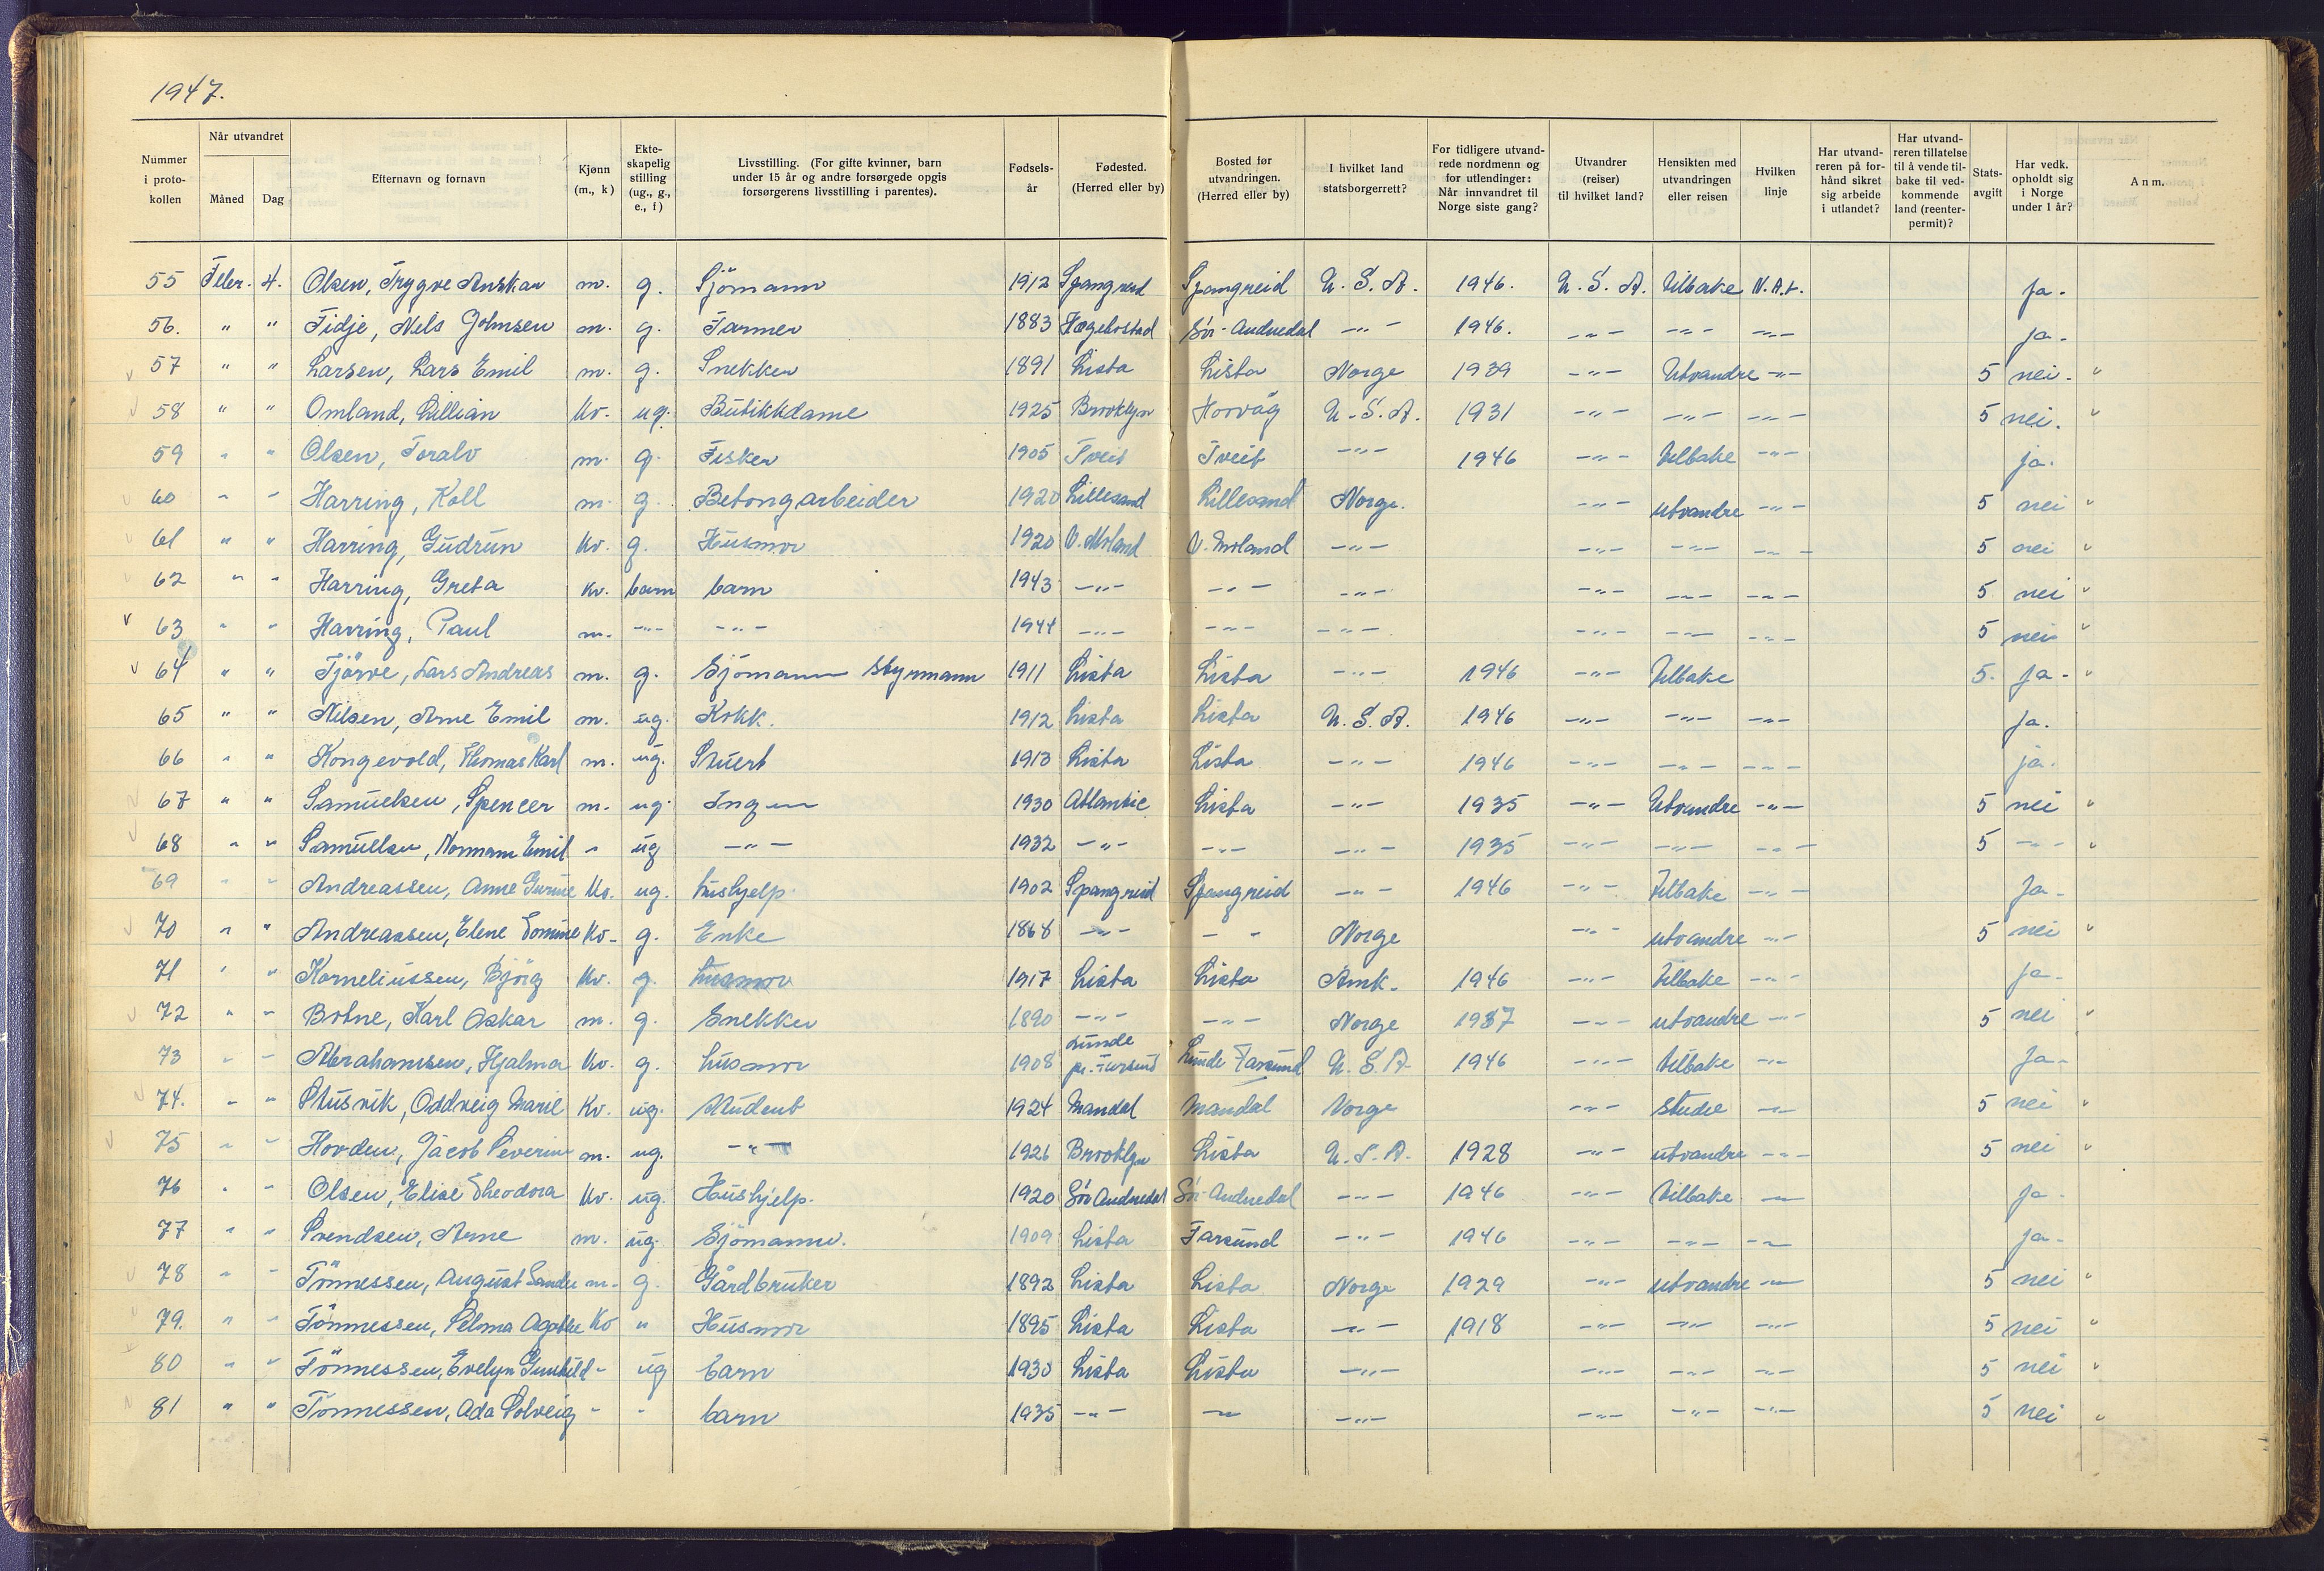 1947.
Nummer i proto-kollen | Når utvandret Måned Dag | Efternavn og fornavn | Kjønn (m., k) | Ekte-skapelig stilling (ug., g., e., f) | Livsstilling. (For gifte kvinner, barn under 15 år og andre forsørgede opgis forsørgerens livsstilling i parentes). | Fødsels-år | Fødested. (Herred eller by) | Bosted før utvandringen. (Herred eller by) | I hvilket land statsborgerrett? | For tidligere utvand-rede nordmenn og for utlendinger: Når innvandret til Norge siste gang? | Utvandrer (reiser) til hvilket land? | Hensikten med utvandringen eller reisen | Hvilken linje | Har utvand-reren på for-hånd sikret sig arbeide i utlandet? | Har utvand-reren tillatelse til å vende til-bake til ved-kommende land (reenter-permit)? | Stats-avgift | Har vedk. opholdt sig i Norge under 1 år? | Anm.
55 Feber. 4. Olsen, Trygve Anskar m. g. Sjömann 1912 Spangreid Spangreid U.S.A. 1946. U.S.A. tilbake N.A.L. ja.
56. " " Fidje, Nels Johnsen m. g. Farmer 1883 Hægebostad Sör-Audnedal -"- 1946. -"- -"- -"- ja.
57 " " Larsen, Lars Emil m. g. Snekker 1891 Lista Lista Norge 1939 -"- Utvandre -"- 5 nei. "
58 " " Omland, Lillian kv. ug. Butikkdame 1925 Brooklyn Hövåg U.S.A. 1931 -"- -"- -"- 5 nei. "
59 " " Olsen, Toralv m. g. Fisker 1905 Tveit Tveit -"- 1946 -"- tilbake -"- ja.
60 " " Harring, Koll m. g. Betongarbeider 1920 Lillesand Lillesand Norge. -"- utvandre -"- 5 nei "
61 " " Harring, Gudrun kv. g. Husmor 1920 V. Moland V. Moland -"- -"- -"- -"- 5 nei "
62 " " Harring, Greta kv. barn barn 1943 -"- -"- -"- -"- -"- -"- 5. nei "
63 " " Harring, Paul m. -"- -"- 1944 -"- -"- -"- -"- -"- -"- 5 nei "
64 " " Tjörve, Lars Andreas m. g. Sjömann Styrmann 1911 Lista Lista -"- 1946 -"- tilbake 5. ja. "
65 " " Nilsen, Arne Emil m. ug. Kokk. 1912 Lista Lista U.S.A. 1946 -"- -"- -"- ja.
66 " " Kongevold, Thomas Karl m. ug. Stuert 1913 Lista Lista -"- 1946 -"- -"- -"- ja.
67 " " Samuelsen, Spencer m. ug. Ingen 1930 Atlantic Lista -"- 1935 -"- Utvandre -"- 5 nei "
68 " " Samuelsen, Normann Emil " ug -"- 1932 -"- -"- -"- 1935 -"- -"- -"- 5 -"- "
69 " " Andreassen, Anne Gurine kv. ug. hushjelp. 1902 Spangreid Spangreid -"- 1946 -"- tilbake -"- Ja.
70 " " Andreassen, Elene Tomine kv. g. Enke 1868 -"- - " Norge -"- utvandre -"- 5 nei "
71 " " Korneliussen, Björg kv. g. husmor 1917 Lista Lista Amk. 1946 -"- tilbake -"- ja.
72 " " Botne, Karl Oskar m. g. Snekker 1890 -"- -"- Norge 1937 -"- utvandre -"- 5 nei "
73 " " Abrahamsen, Hjalma kv. g. husmor 1908 Lunde pr. Farsund Lunde Farsund U.S.A. 1946 -"- tilbake -"- Ja.
74. " " Stusvik, Oddveig Marie kv. ug. Student 1924 Mandal Mandal Norge -"- studie -"- 5 nei "
75 " " Hovden, Jacob Severin m. ug. -"- 1926 Brooklyn Lista U.S.A. 1928 -"- utvandre -"- 5 nei "
76 " " Olsen, Elise Theodora kv. ug. Hushjelp. 1920 Sör Audnedal Sör-Audnedal -"- 1946 -"- tilbake -"- ja
77 " " Svendsen, Arne m. ug. Sjömann. 1909 Lista Farsund -"- 1946 -"- -"- -"- ja.
78 " " Tönnessen, August Sander m. g. Gårdbruker 1892 Lista Lista Norge 1929 -"- utvandre -"- 5 nei "
79. " " Tönnessen, Selma Agathe kv " Husmor 1895 Lista Lista -"- 1918 -"- -"- -"- 5 nei "
80 " " Tönnessen, Evelyn Gunhild " ug barn 1930 Lista Lista -"- -"- -"- -"- 5 nei "
81 " " Tönnessen, Ada Solveig " " barn 1935 -"- -"- -"- -"- -"- -"- 5 nei "